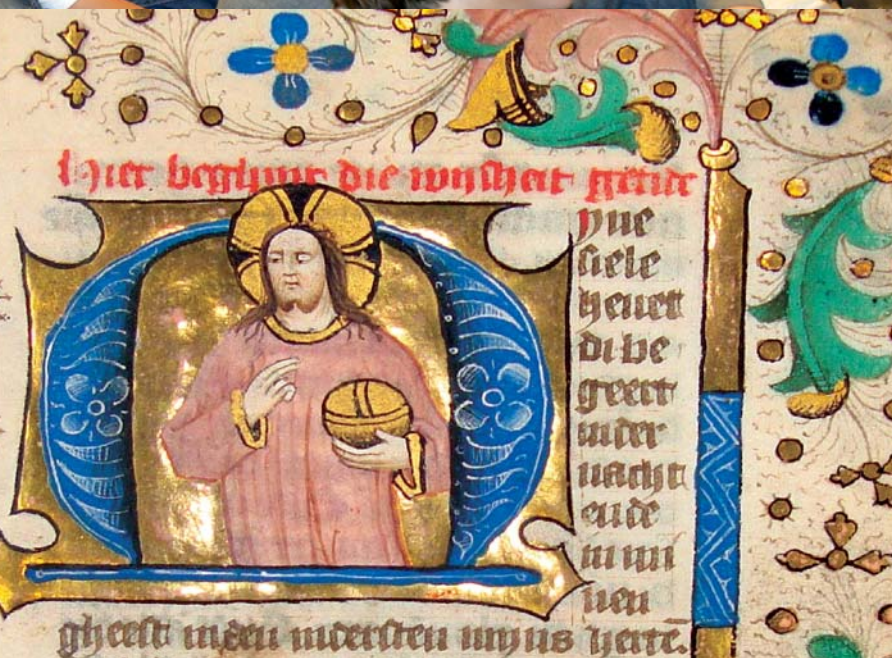 Hier beghint die wijsheit getide
yne
siele
heuet
di be
geert
inder
nacht
ende
in mi
nen
gheest inden indersten mijns herte̅.